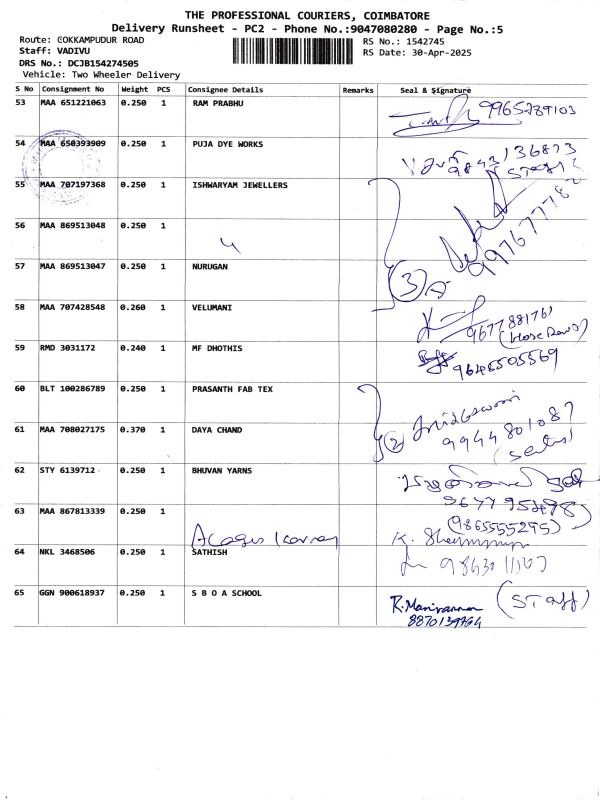 THE PROFESSIONAL COURIERS, COIMBATORE
Delivery Runsheet - PC2 - Phone No.:9047080280 - Page No.:5
Route: COKKAMPUDUR ROAD
RS No.: 1542745
Staff: VADIVU
RS Date: 30-Apr-2025
DRS No.: DCJB154274505
Vehicle: Two Wheeler Delivery
S No Consignment No Weight PCS Consignee Details Remarks Seal & Signature
53 MAA 651221063 0.250 1 RAM PRABHU 9965289103
54 MAA 650393909 0.250 1 PUJA DYE WORKS
55 MAA 707197368 0.250 1 ISHWARYAM JEWELLERS
56 MAA 869513048 0.250 1
57 MAA 869513047 0.250 1 NURUGAN
3
58 MAA 707428548 0.260 1 VELUMANI
59 RMD 3031172 0.240 1 MF DHOTHIS
9646505569
60 BLT 100286789 0.250 1 PRASANTH FAB TEX
61 MAA 708027175 0.370 1 DAYA CHAND
2 9944801087
62 STY 6139712 0.250 1 BHUVAN YARNS
967795498
63 MAA 867813339 0.250 1
(9865555295)
64 NKL 3468506 0.250 1 SATHISH
65 GGN 900618937 0.250 1 S B O A SCHOOL
R. Manivannan (STAFF)
8870139764